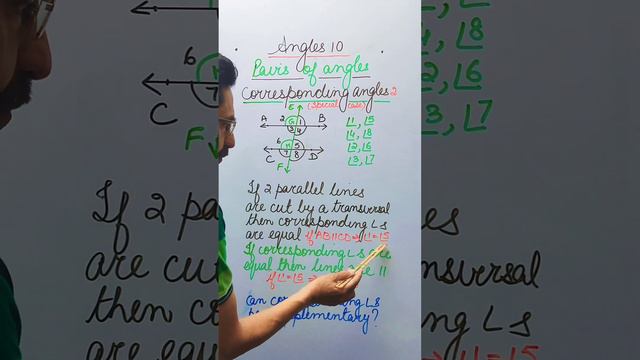 Angles 10
Pairs of angles
Corresponding angles 2
(Special case)
E
A 2 G 1 B
3 4
6 H 5
C 7 8 D
F
∠1, ∠5
∠4, ∠8
∠2, ∠6
∠3, ∠7
If 2 parallel lines
are cut by a transversal
then corresponding ∠s
are equal if AB||CD ⇒ ∠1=∠5
If corresponding ∠s
equal then lines are ||
if ∠1=∠5 ⇒
Can corresponding ∠s
be complementary?